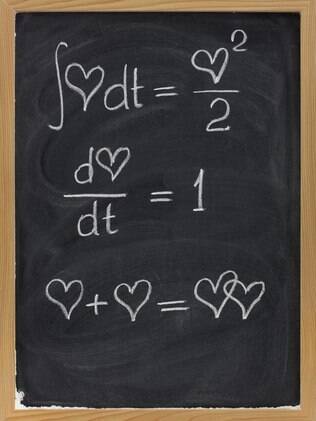 ∫♡dt = ♡²/2
d♡/dt = 1
♡ + ♡ = ♡♡